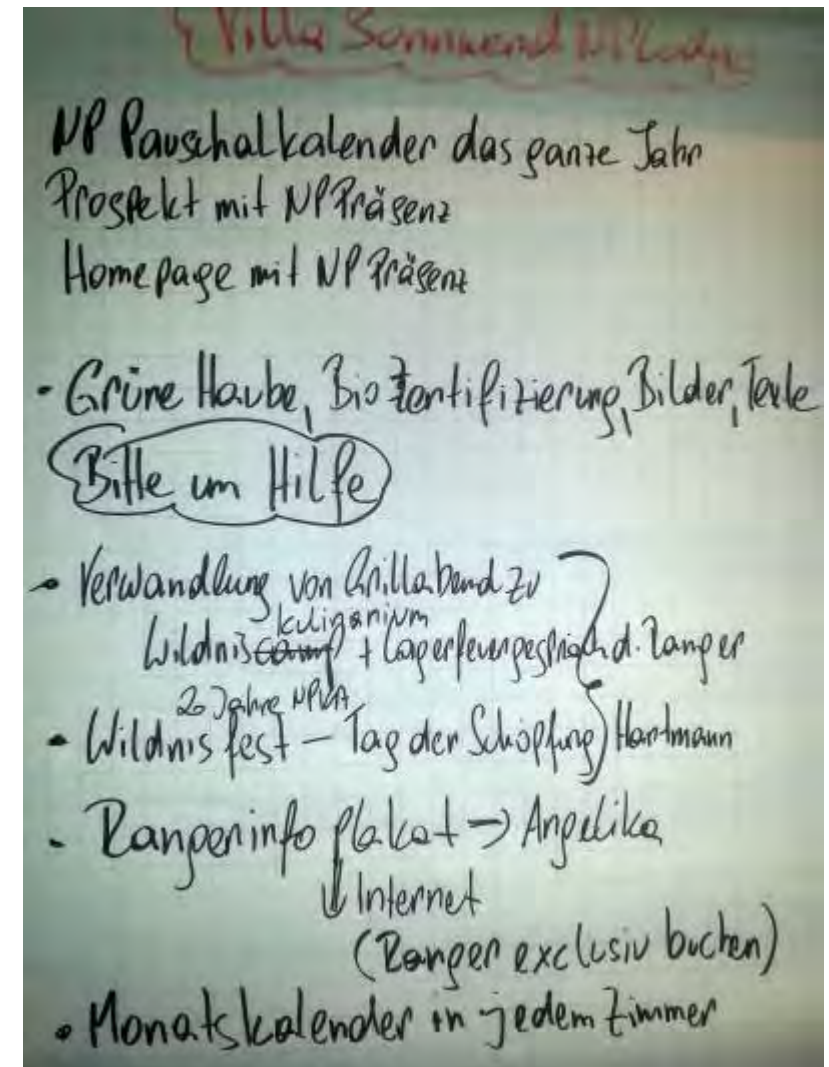 Villa Sonnwend NP Lodge
NP Pauschalkalender das ganze Jahr
Prospekt mit NP Präsenz
Homepage mit NP Präsenz
- Grüne Haube, Bio Zertifizierung, Bilder, Texte
Bitte um Hilfe
- Verwandlung von Grillabend zu
kulinarium
Wildniscamp + Lagerfeuergespräch d. Ranger
20 Jahre NPKA
- Wildnisfest – Tag der Schöpfung Hartmann
- Rangerinfo plakat → Angelika
↓ Internet
(Ranger exclusiv buchen)
• Monatskalender in jedem Zimmer